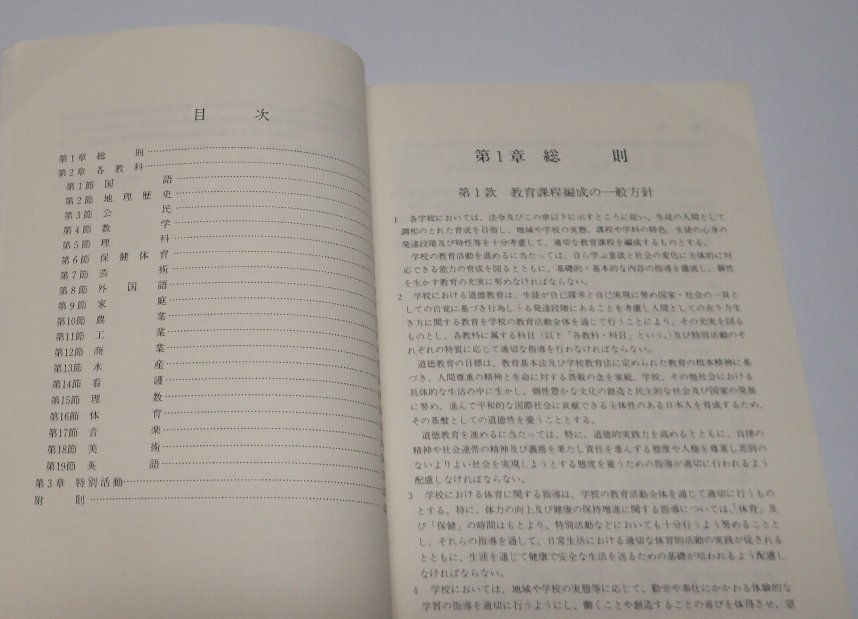 目 次
第1章 総 則
第2章 各教科
第1節 国 語
第2節 地理歴史
第3節 公 民
第4節 数 学
第5節 理 科
第6節 保健体育
第7節 芸 術
第8節 外国語
第9節 家 庭
第10節 農 業
第11節 工 業
第12節 商 業
第13節 水 産
第14節 看 護
第15節 理 数
第16節 体 育
第17節 音 楽
第18節 美 術
第19節 英 語
第3章 特別活動
附 則
第1章 総 則
第1款 教育課程編成の一般方針
1 各学校においては、法令及びこの章以下に示すところに従い、生徒の人間として
調和のとれた育成を目指し、地域や学校の実態、課程や学科の特色、生徒の心身の
発達段階及び特性等を十分考慮して、適切な教育課程を編成するものとする。
学校の教育活動を進めるに当たっては、自ら学ぶ意欲と社会の変化に主体的に対
応できる能力の育成を図るとともに、基礎的・基本的な内容の指導を徹底し、個性
を生かす教育の充実に努めなければならない。
2 学校における道徳教育は、生徒が自己探求と自己実現に努め国家・社会の一員と
しての自覚に基づき行為しうる発達段階にあることを考慮し人間としての在り方生
き方に関する教育を学校の教育活動全体を通じて行うことにより、その充実を図る
ものとし、各教科に属する科目（以下「各教科・科目」という。）及び特別活動のそ
れぞれの特質に応じて適切な指導を行わなければならない。
道徳教育の目標は、教育基本法及び学校教育法に定められた教育の根本精神に基
づき、人間尊重の精神と生命に対する畏敬の念を家庭、学校、その他社会における
具体的な生活の中に生かし、個性豊かな文化の創造と民主的な社会及び国家の発展
に努め、進んで平和的な国際社会に貢献できる主体性のある日本人を育成するため、
その基盤としての道徳性を養うこととする。
道徳教育を進めるに当たっては、特に、道徳的実践力を高めるとともに、自律の
精神や社会連帯の精神及び義務を果たし責任を重んずる態度や人権を尊重し差別の
ないよりよい社会を実現しようとする態度を養うための指導が適切に行われるよう
配慮しなければならない。
3 学校における体育に関する指導は、学校の教育活動全体を通じて適切に行うもの
とする。特に、体力の向上及び健康の保持増進に関する指導については、「体育」及
び「保健」の時間はもとより、特別活動などにおいても十分行うよう努めることと
し、それらの指導を通して、日常生活における適切な体育的活動の実践が促される
とともに、生涯を通じて健康で安全な生活を送るための基礎が培われるよう配慮し
なければならない。
4 学校においては、地域や学校の実態等に応じて、勤労や奉仕にかかわる体験的な
学習の指導を適切に行うようにし、働くことや創造することの喜びを体得させ、望